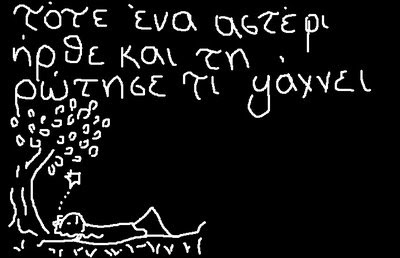 τότε ένα αστέρι
ήρθε και τη
ρώτησε τι ψάχνει